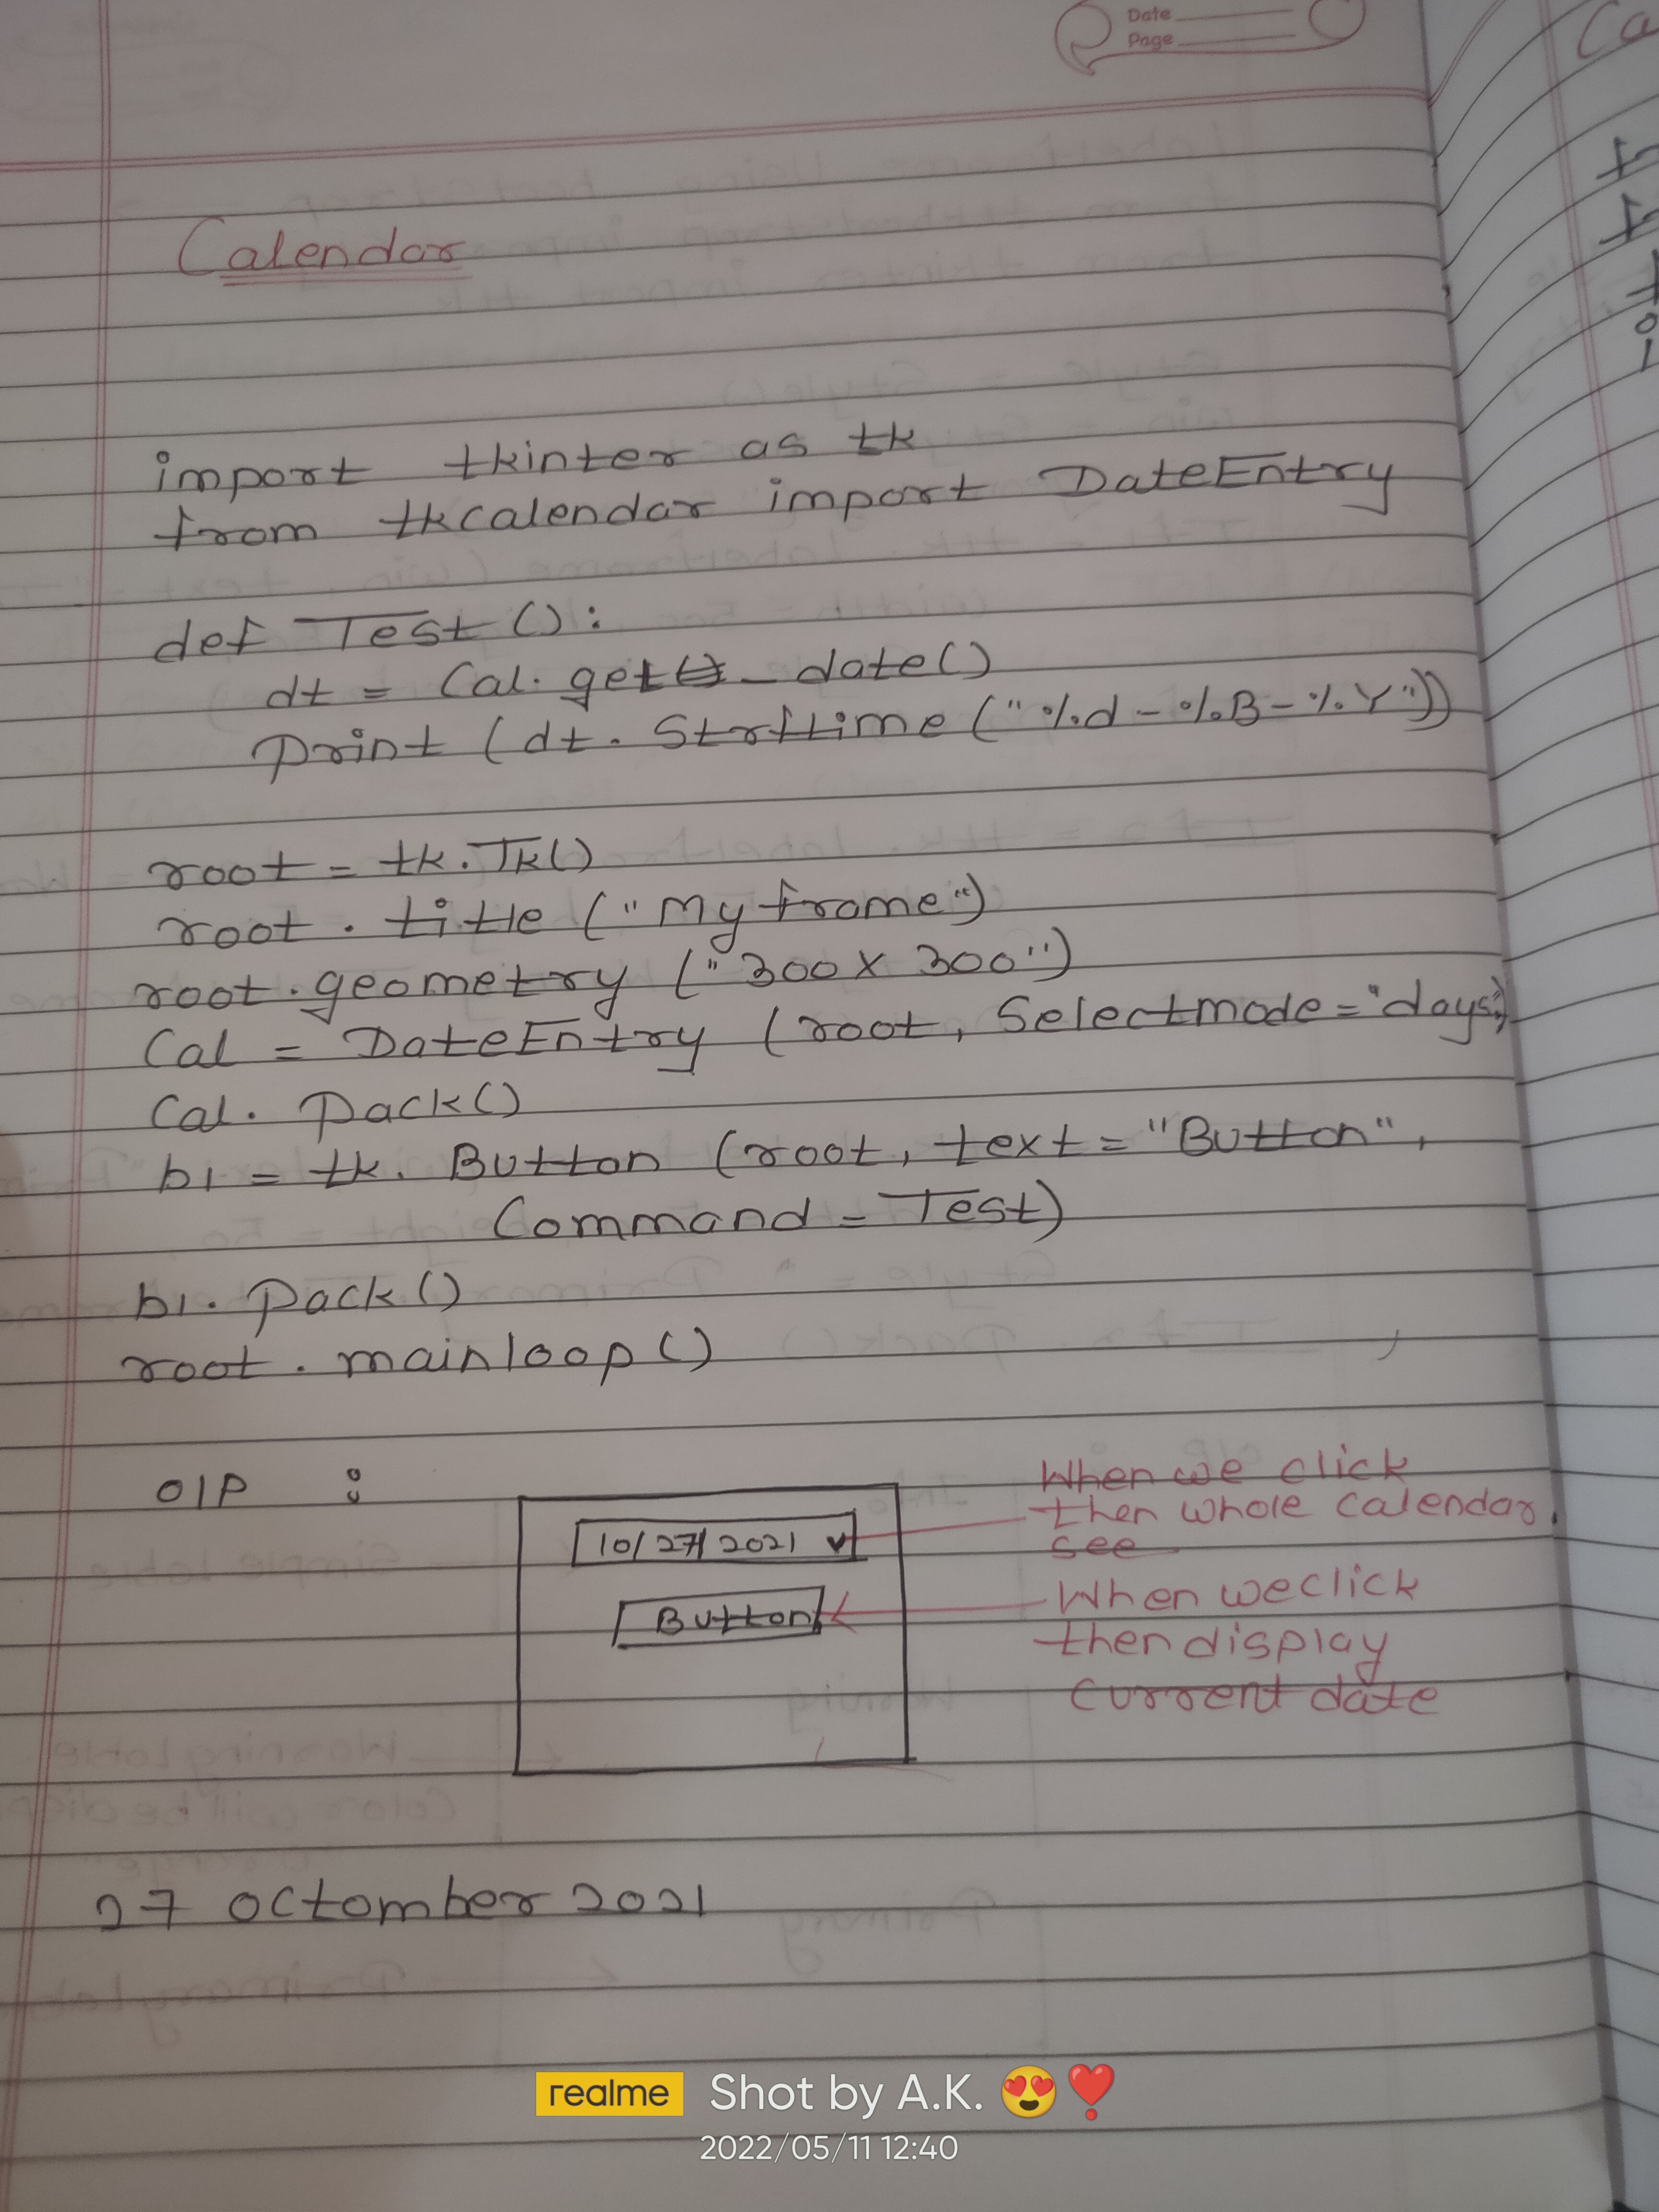 Date
Page
Calendar
import tkinter as tk
from tkcalendar import DateEntry
def Test ():
dt = Cal. get_date()
Print (dt. Strftime ("%d-%B-%Y"))
root = tk.Tk()
root . title ("My frame")
root.geometry ("300 x 300")
Cal = DateEntry (root, Selectmode="days")
Cal. Pack()
b1 = tk. Button (root, text = "Button",
Command = Test)
b1. Pack()
root . mainloop()
O/P :
When we click
then whole calendar.
see
10/27/2021
Button
When we click
then display
current date
27 octomber 2021
realme Shot by A.K. 😍❣️
2022/05/11 12:40